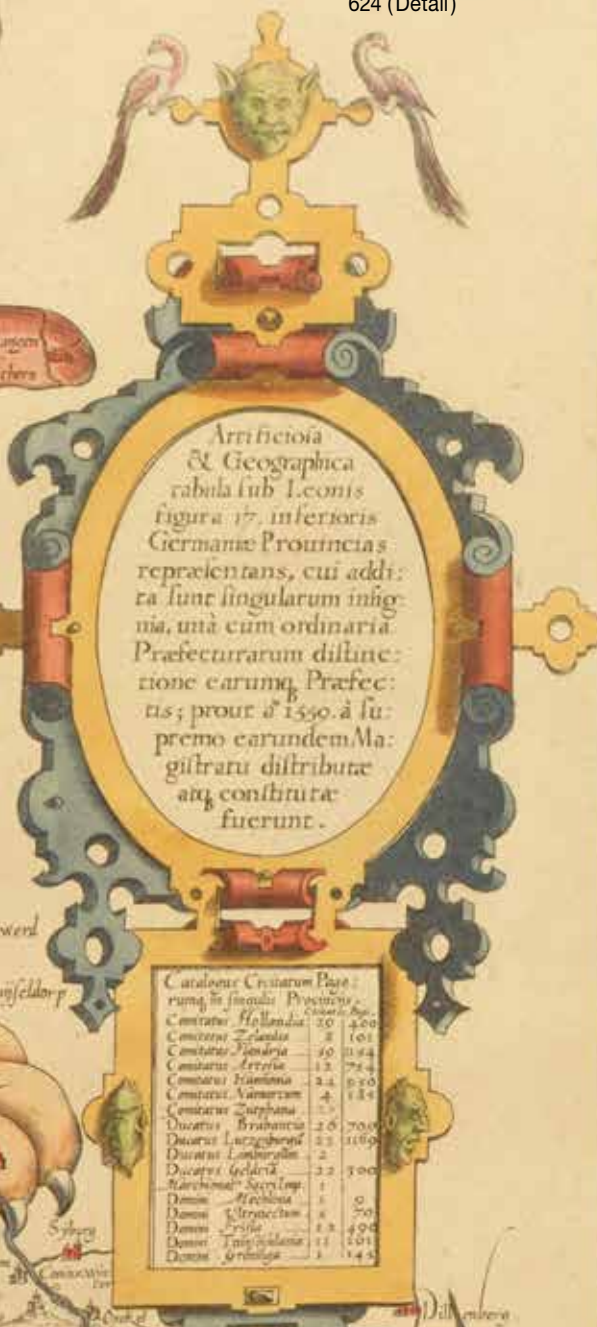 624 (Detail)
Artificiosa
& Geographica
tabula sub Leonis
figura 17. inferioris
Germaniæ Prouincias
repræsentans, cui addi:
ta sunt singularum insig:
nia, unà cum ordinaria
Præfecturarum distinc:
tione earumq Præfec:
tis; prout aº 1559. à su:
premo earundem Ma:
gistratu distributæ
atq constitutæ
fuerunt.
werd
Catalogus Civitatum Pago:
rumq in singulis Provincijs.
Comitatus Hollandia 29 400
Comitatus Zelandia 8 101
Comitatus Flandria
Comitatus Artesia 12 754
Comitatus Hannonia 24 950
Comitatus Namurcum 4 182
Comitatus Zutphania
Ducatus Brabantia 26 700
Ducatus 23 1169
Ducatus 2
Ducatus Geldria 22 300
Marchionat Sacri Imp. 1
Domini Mechlinia 1 9
Domini Ultraiectum 70
Domini Frisia 12 490
Domini 11 101
Domini 1 145
Syburg